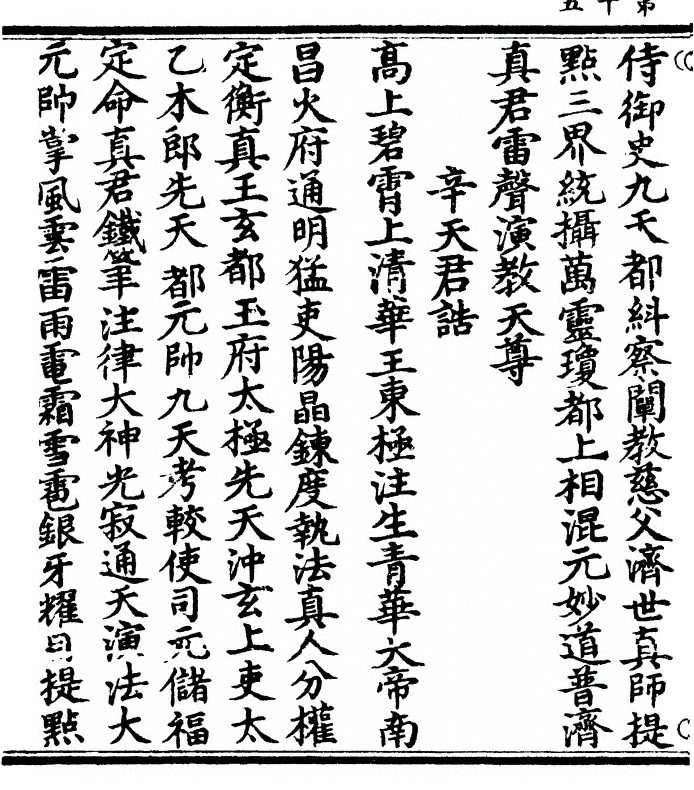 第十五
侍御史九天都糾察闡教慈父濟世真師提
點三界統攝萬靈瓊都上相混元妙道普濟
真君雷聲演教天尊
辛天君誥
高上碧霄上清華王東極注生青華大帝南
昌火府通明猛吏陽晶鍊度執法真人分權
定衡真王玄都玉府太極先天沖玄上吏太
乙木郎先天都元帥九天考較使司元儲福
定命真君鐵筆注律大神光寂通天演法大
元帥掌風雲雷雨電霜雪雹銀牙耀目提點